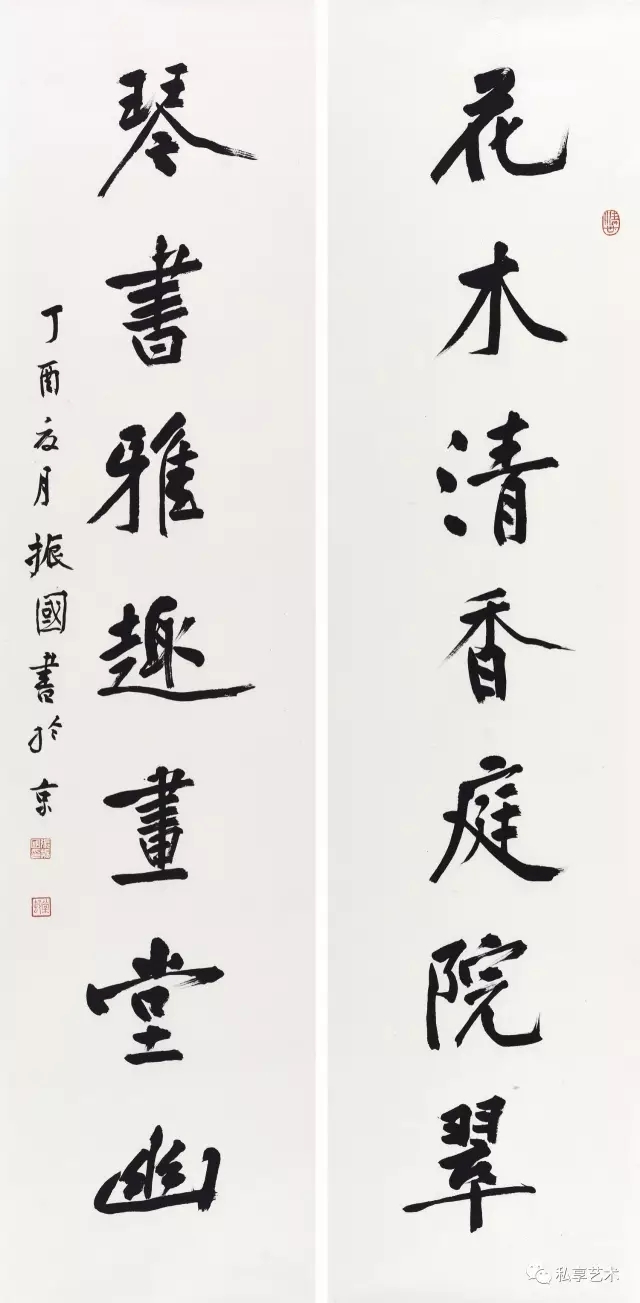 花木清香庭院翠
琴書雅趣畫堂幽
丁酉夏月振國書於京
私享艺术